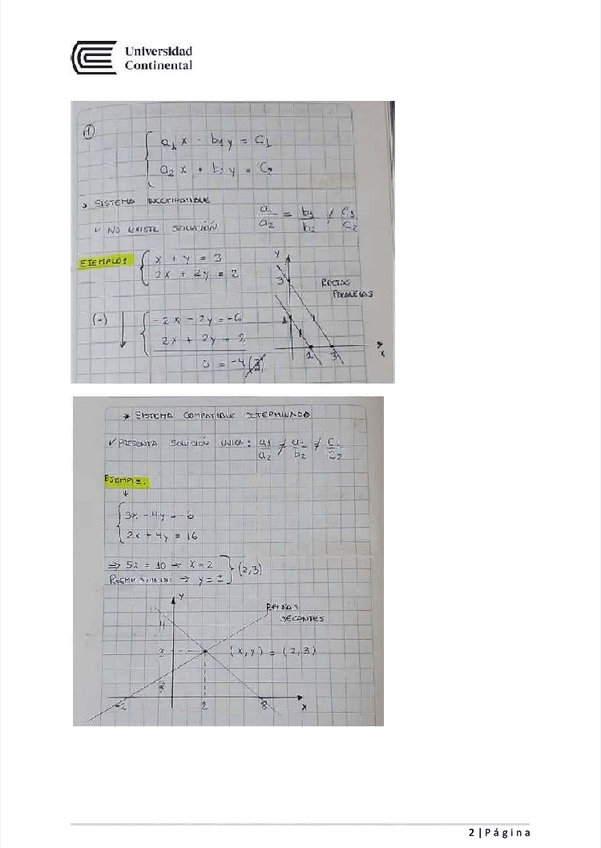 Universidad
Continental
①
a₁ x - b₁ y = C₁
a₂ x + b₂ y = C₂
→ SISTEMA INCOMPATIBLE
✓ NO EXISTE SOLUCIÓN
a₁/a₂ = b₁/b₂ ≠ C₁/C₂
EJEMPLO:
x + y = 3
2x + 2y = 2
y
3
RECTAS
PARALELAS
(-)
-2x - 2y = -6
2x + 2y = 2
0 = -4
1
2 3
x
→ SISTEMA COMPATIBLE DETERMINADO
✓ PRESENTA SOLUCIÓN ÚNICA: a₁/a₂ ≠ /b₂ ≠
EJEMPLO:
3x - 4y = -6
2x + 4y = 16
⇒ 5x = 10 → x = 2
(2,3)
→ y =
y
RECTAS
SECANTES
4
(x, y) = (2, 3)
-2
2
8
x
2 | Página